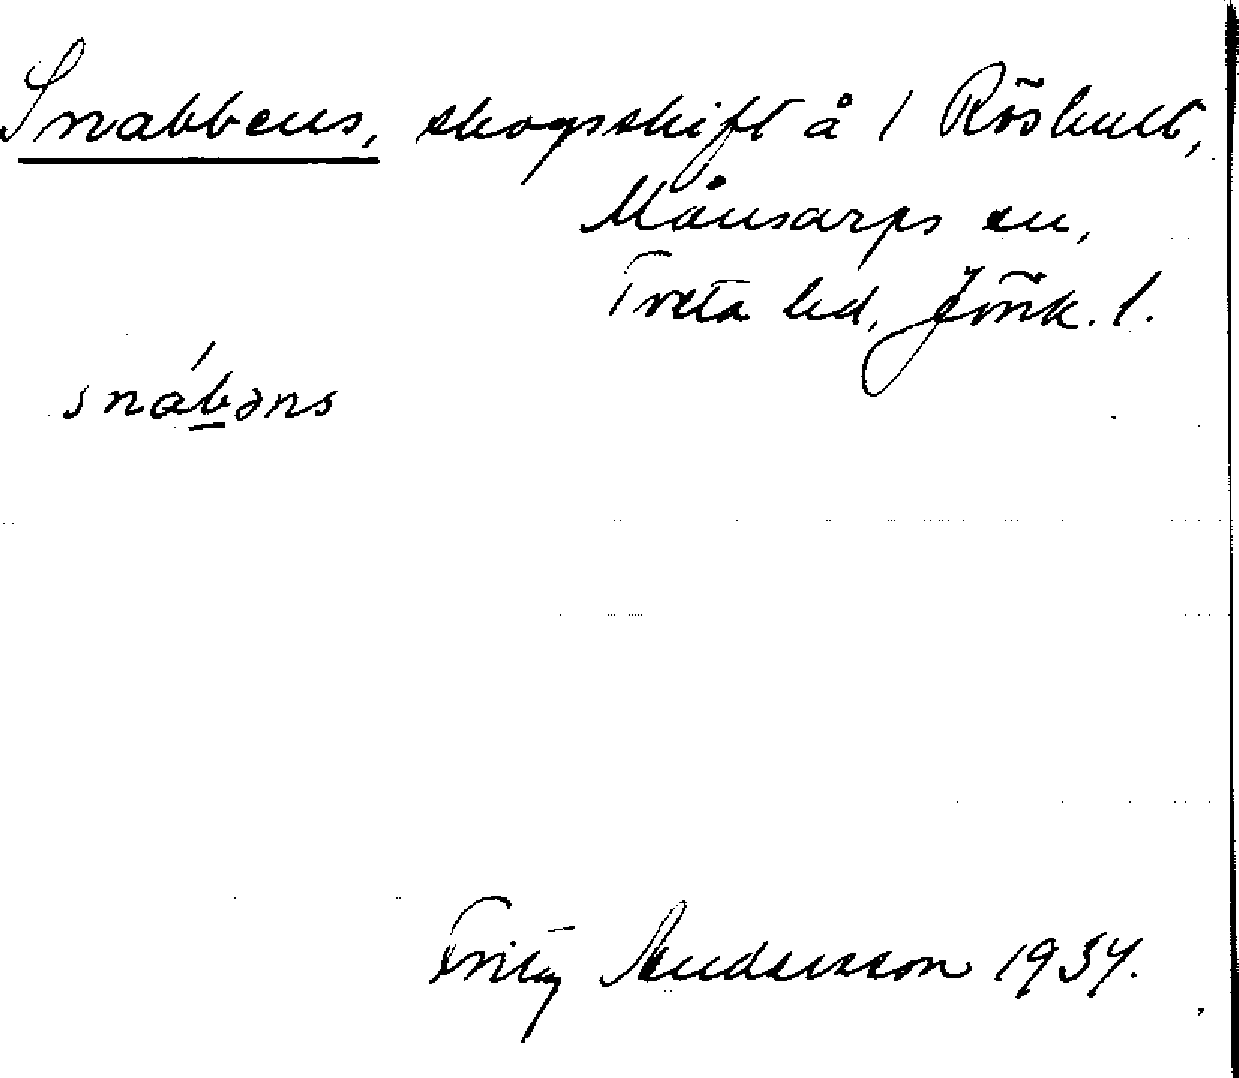 Snabbens, skogsskift å 1 Röshult,
Månsarps sn,
Tveta hd, Jönk. l.
snáb̲əns
Fritz Andersson 1934.